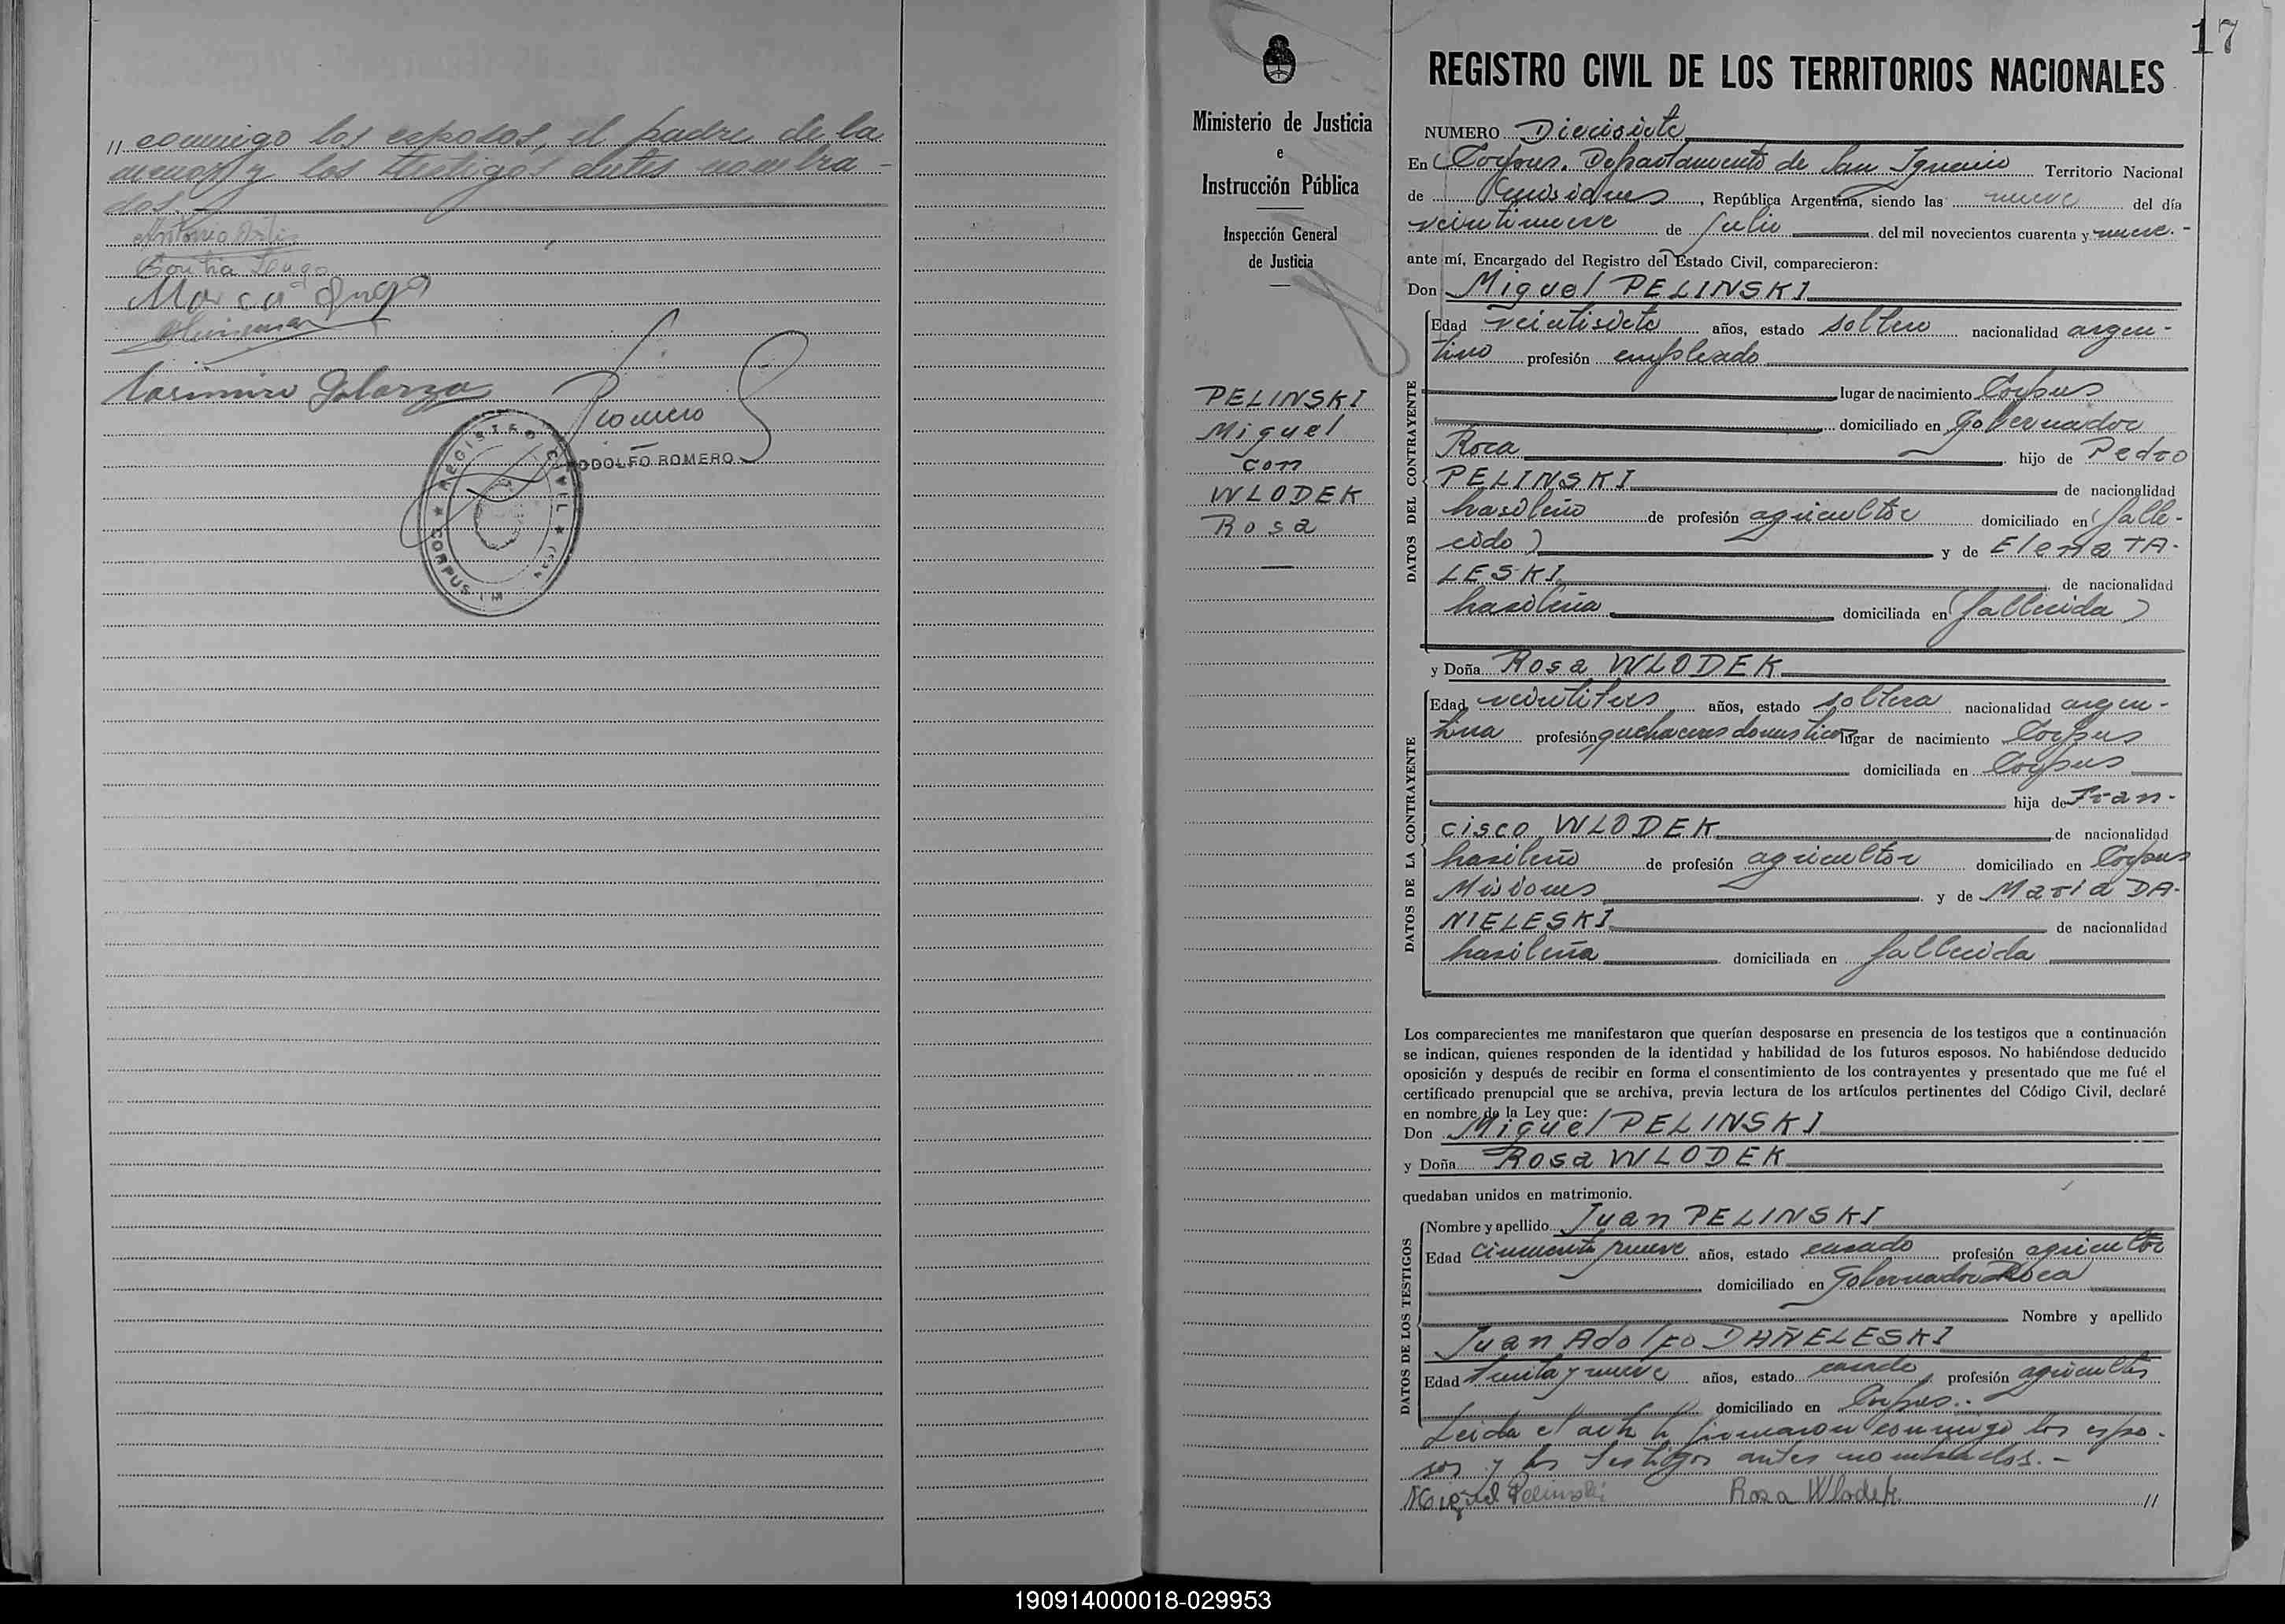 " conmigo los esposos, el padre de la
menor y los testigos antes nombra-
dos.
Antonio Ortis
Marcos
Casimiro Galarza
Romero
RODOLFO ROMERO
REGISTRO CIVIL
CORPUS MIS
17
Ministerio de Justicia
e
Instrucción Pública
Inspección General
de Justicia
PELINSKI
Miguel
con
WLODEK
Rosa
REGISTRO CIVIL DE LOS TERRITORIOS NACIONALES
NUMERO Diecisiete
En Corpus. Departamento de San Ignacio Territorio Nacional
de Misiones, República Argentina, siendo las nueve del día
veintinueve de Julio del mil novecientos cuarenta y nueve.-
ante mí, Encargado del Registro del Estado Civil, comparecieron:
Don Miguel PELINSKI
DATOS DEL CONTRAYENTE
Edad veintisiete años, estado soltero nacionalidad argen-
tino profesión empleado
lugar de nacimiento Corpus
domiciliado en Gobernador
Roca hijo de Pedro
PELINSKI de nacionalidad
brasileño de profesión agricultor domiciliado en (falle-
cido) y de Elena TA-
LESKI de nacionalidad
brasileña domiciliada en (fallecida)
y Doña Rosa WLODEK
DATOS DE LA CONTRAYENTE
Edad veintitres años, estado soltera nacionalidad argen-
tina profesión quehaceres domesticos lugar de nacimiento Corpus
domiciliada en Corpus
hija de Fran-
cisco WLODEK de nacionalidad
brasileño de profesión agricultor domiciliado en Corpus
Misiones y de Maria DA-
NIELESKI de nacionalidad
brasileña domiciliada en fallecida
Los comparecientes me manifestaron que querían desposarse en presencia de los testigos que a continuación
se indican, quienes responden de la identidad y habilidad de los futuros esposos. No habiéndose deducido
oposición y después de recibir en forma el consentimiento de los contrayentes y presentado que me fué el
certificado prenupcial que se archiva, previa lectura de los artículos pertinentes del Código Civil, declaré
en nombre de la Ley que:
Don Miguel PELINSKI
y Doña Rosa WLODEK
quedaban unidos en matrimonio.
DATOS DE LOS TESTIGOS
Nombre y apellido Juan PELINSKI
Edad cincuenta nueve años, estado casado profesión agricultor
domiciliado en Gobernador Roca
Nombre y apellido
Juan Adolfo DAÑELESKI
Edad treinta y nueve años, estado casado profesión agricultor
domiciliado en Corpus.-
Leida el acta la firmaron conmigo los espo-
sos y los testigos antes nombrados.-
Miguel Pelinski Rosa Wlodek //
190914000018-029953